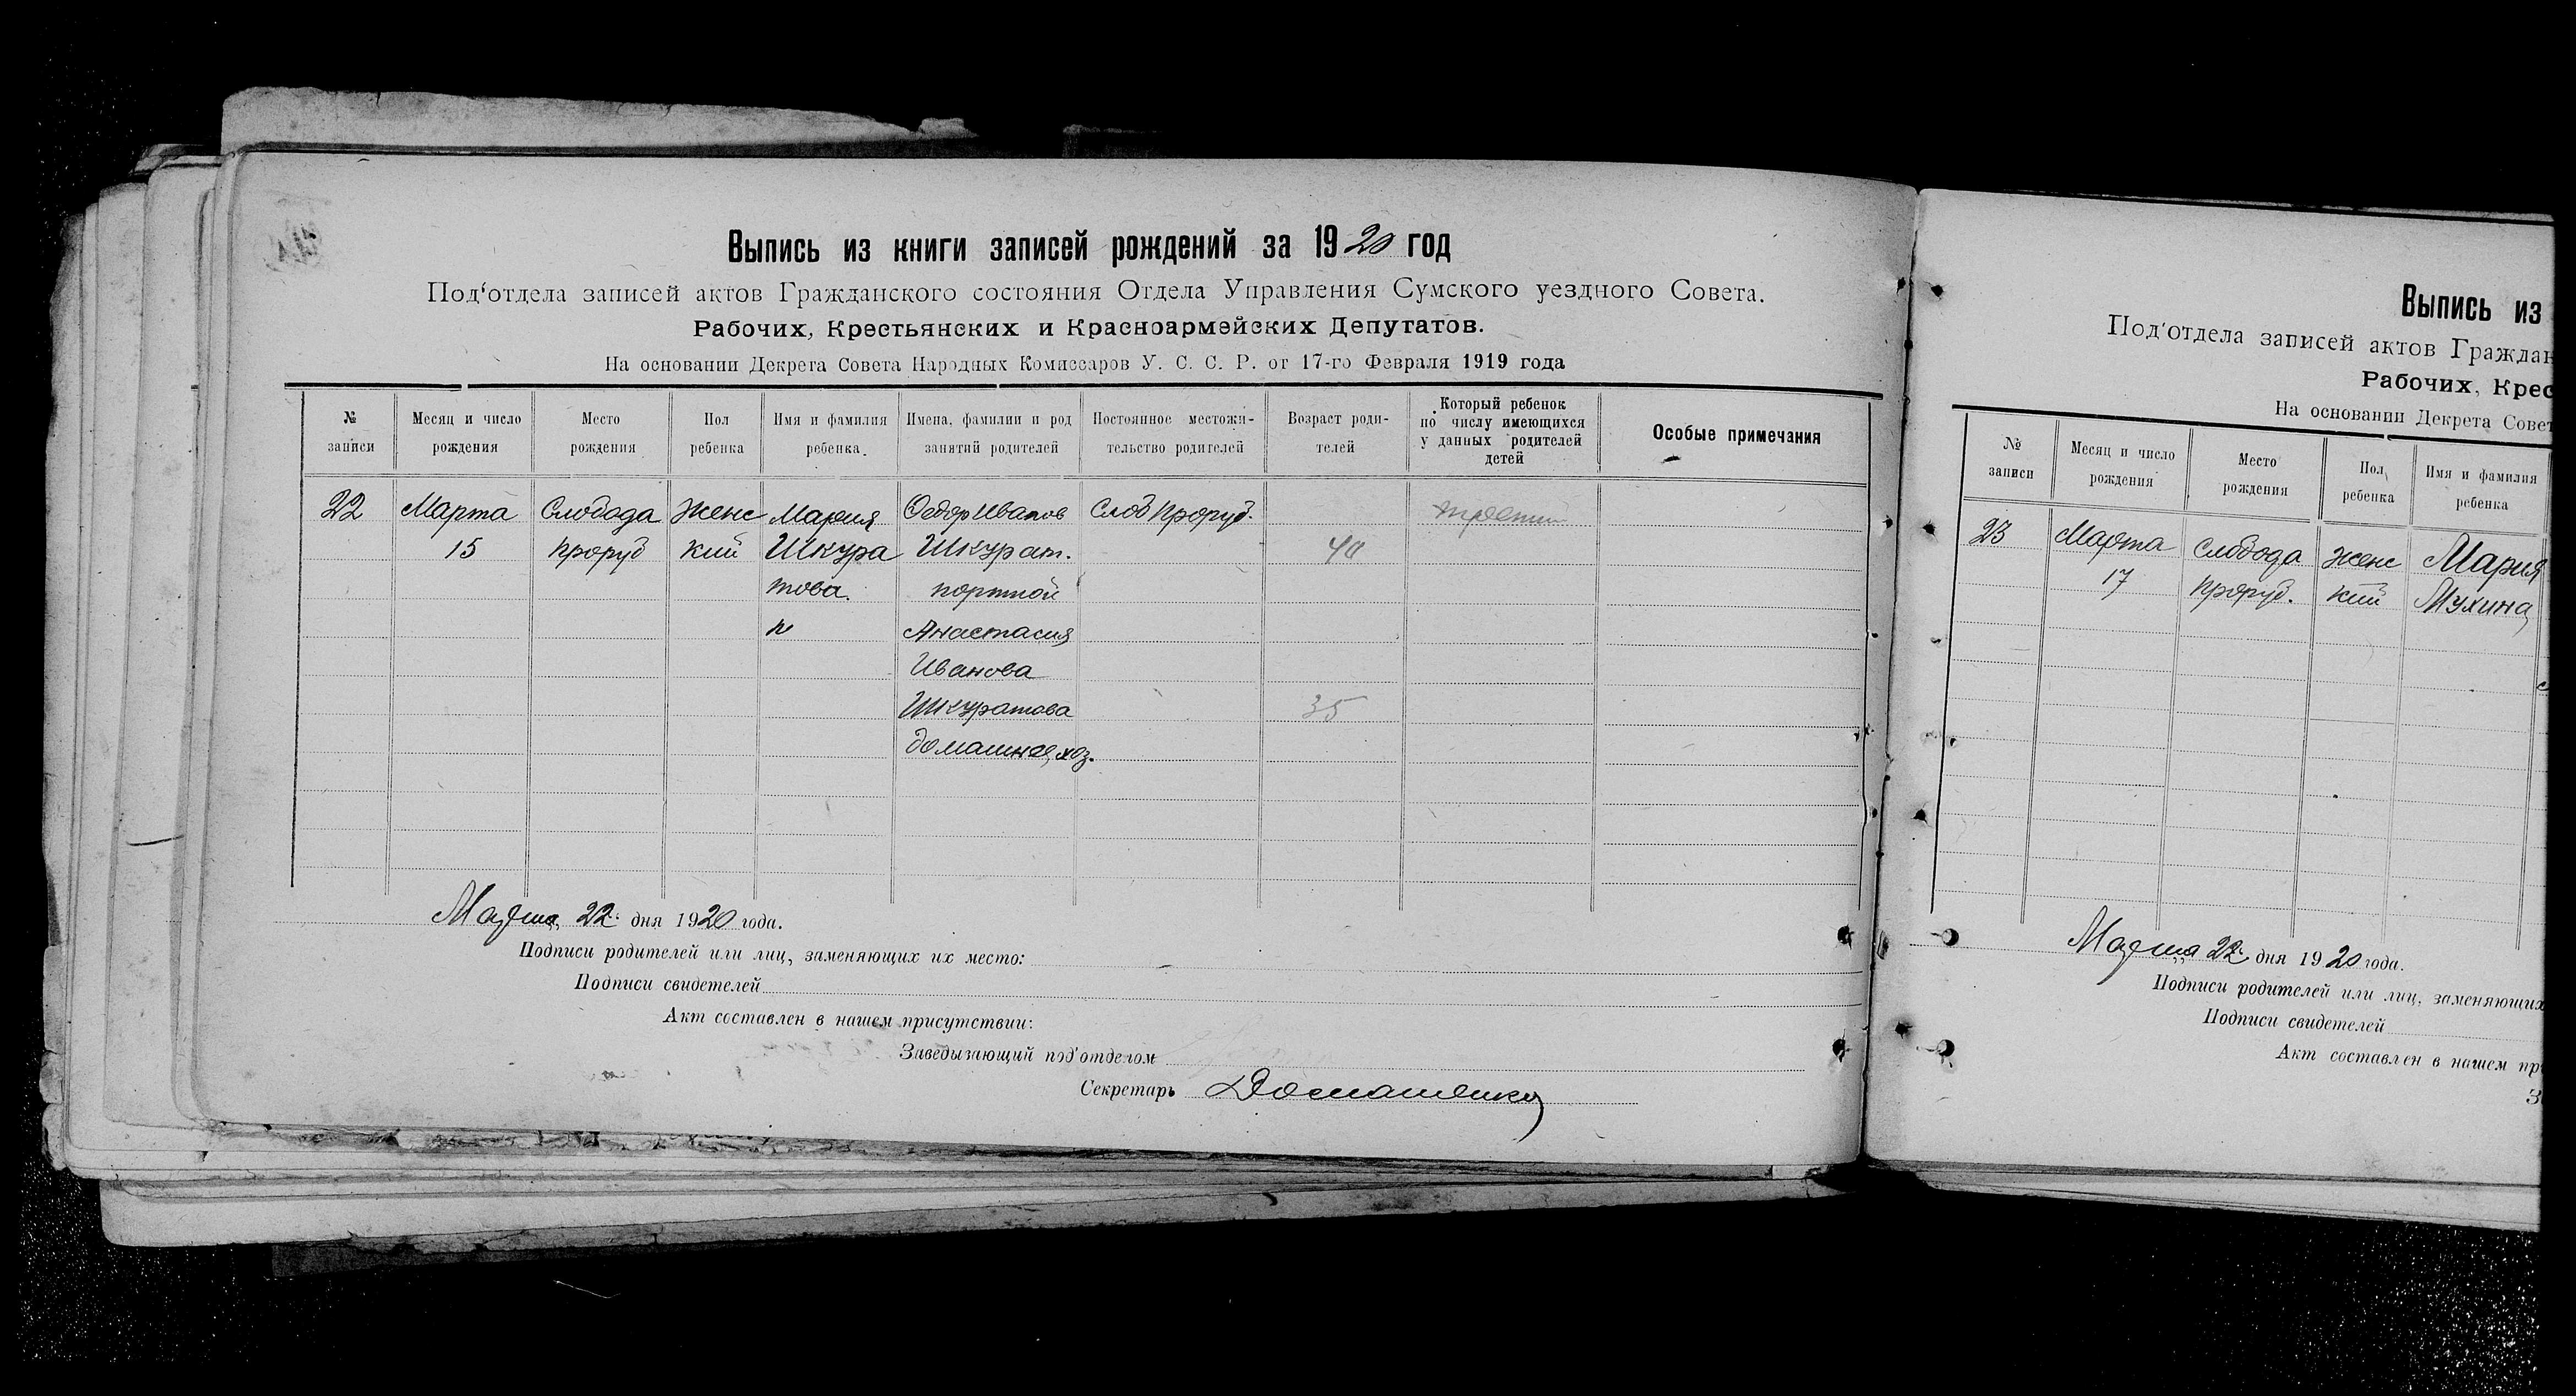 Выпись из книги записей рождений за 1920 год
Под‘отдела записей актов Гражданского состояния Отдела Управления Сумского уездного Совета.
Рабочих, Крестьянских и Красноармейских Депутатов.
На основании Декрета Совета Народных Комиссаров У. С. С. Р. от 17-го Февраля 1919 года
№ записи
Месяц и число рождения
Место рождения
Пол ребенка
Имя и фамилия ребенка.
Имена, фамилии и род занятий родителей
Постоянное местожительство родителей
Возраст родителей
Который ребенок по числу имеющихся у данных родителей детей
Особые примечания
22 Марта Слобода Женс Мария Федор Иванов Слоб Проруб. третий
15 Проруб кий Шкура Шкурат. 40
това. портной
Анастасия
Иванова
Шкуратова 35
домашнее хоз.
Марта 22 дня 1920 года.
Подписи родителей или лиц, заменяющих их место:
Подписи свидетелей
Акт составлен в нашем присутствии:
Заведывающий под‘отделом
Секретарь Домашенко
Выпись из
Под‘отдела записей актов Граждан
Рабочих, Крес
На основании Декрета Совет
№ записи
Месяц и число рождения
Место рождения
Пол ребенка
Имя и фамилия ребенка
23 Марта Слобода Женс Мария
17 Проруб. кий Мухина
Марта 22 дня 1920 года.
Подписи родителей или лиц, заменяющих
Подписи свидетелей
Акт составлен в нашем пр